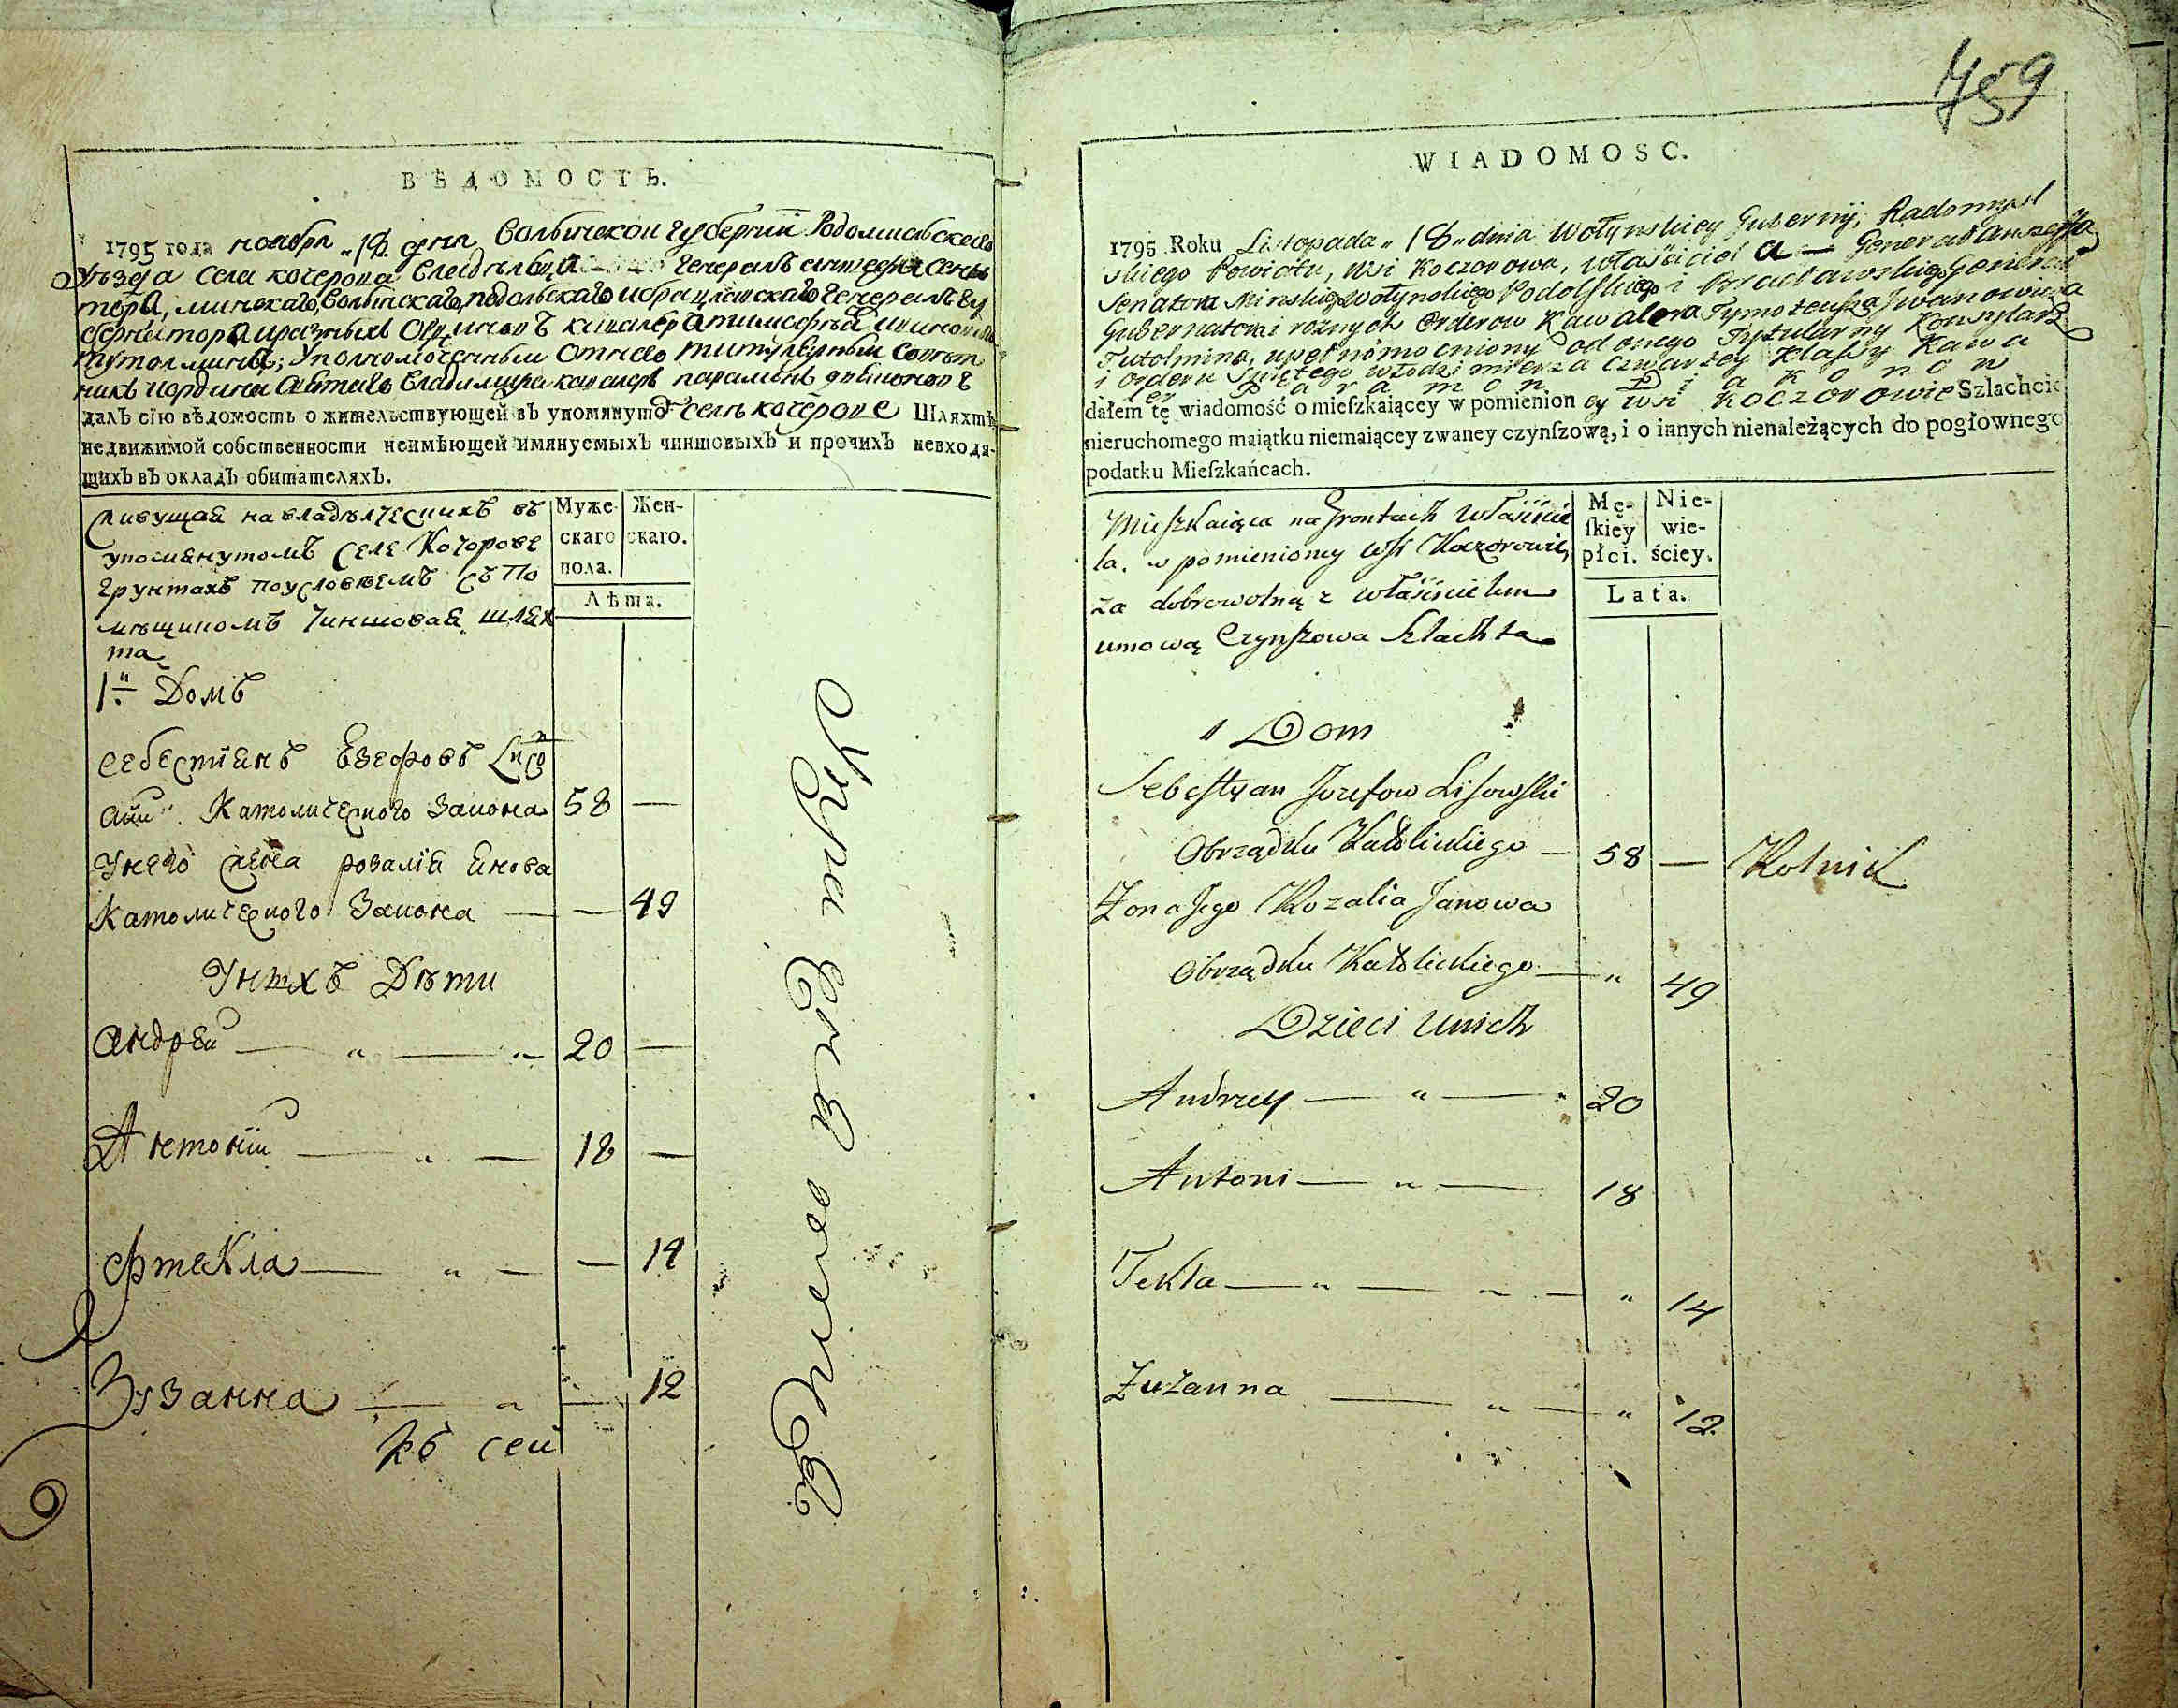 ВѢДОМОСТЬ.
1795 года ноября 18 дня Волынской губернии Радомисльскаго
Уѣзда села Кочерова владѣльца генералъ аншефа сена
тора, минскаго, волынскаго, подольскаго и брацлавскаго генералъ гу
бернатора и разныхъ орденовъ кавалера тимофея ивановича
тутолмина; уполномоченный от него титулярный совѣт
никъ и ордина святаго владимира кавалеръ парамонъ дьяконовъ
далъ сїю вѣдомость о жительствующей въ упомянутом селѣ кочерове Шляхтѣ
недвижимой собственности неимѣющей имянуемыхъ чиншовыхъ и прочихъ невходя-
щихъ въ окладъ обитателяхъ.
Живущая на владѣлческихъ въ
упомянутомъ селе Кочорове
грунтахъ поусловиемъ съ по
мѣщикомъ Чиншовая шлях
та
Муже-
скаго
пола.
Жен-
скаго.
Лѣта.
1й Домъ
Себестиянъ Езефовъ Лисов
ский Католического закона 58 —
Унего жена розалия Янова
Католического закона — — 49
Унихъ Дѣти
Андрей — " — " 20 —
Антоний — " — 18 —
Фтекла — " — — 14
Зузанна — " — 12
къ сей
759
WIADOMOSC.
1795 Roku Listopada „ 18 „ dnia Wołynskiey Gubernij, Radomysl
skiego Powiatu, wsi Koczorowa, właściciela — Generał Anszeffa
Senatora Minskiego Wołynskiego Podolskiego i Bractawskiego Generał
Gubernatora i roznych Orderow Kawalera Tymoteusza Iwanowicza
Tutolmina, upełnomocniony od onego Tytularny Konsyliarz
i orderu Swiętego Włodzimierza czwartey klassy Kawa
ler Paramon Diakonow
dałem tę wiadomość o mieſzkaiącey w pomienioney wsi Koczorowie Szlachcie
nieruchomego maiątku niemaiącey zwaney czynſzową, i o innych nienależących do pogłownego
podatku Mieſzkańcach.
Mieszkaiąca na Grontach właścicie
la. w pomienioney wsi Koczorowie,
za dobrowolną z właścicielem
umową Czynszowa Szlachta
Mę-
ſkiey
płci.
Nie-
wie-
ściey.
Lata.
1 Dom
Sebestyan Jozefow Lisowski
Obrządku Katolickiego — 58 — Rolnik
Żona Jego Rozalia Janowa
Obrządku Katolickiego — " 49
Dzieci Unich
Andrzey — " — " 20
Antoni — " — 18
Tekla — " — " — " 14
Zuzanna — " — " 12